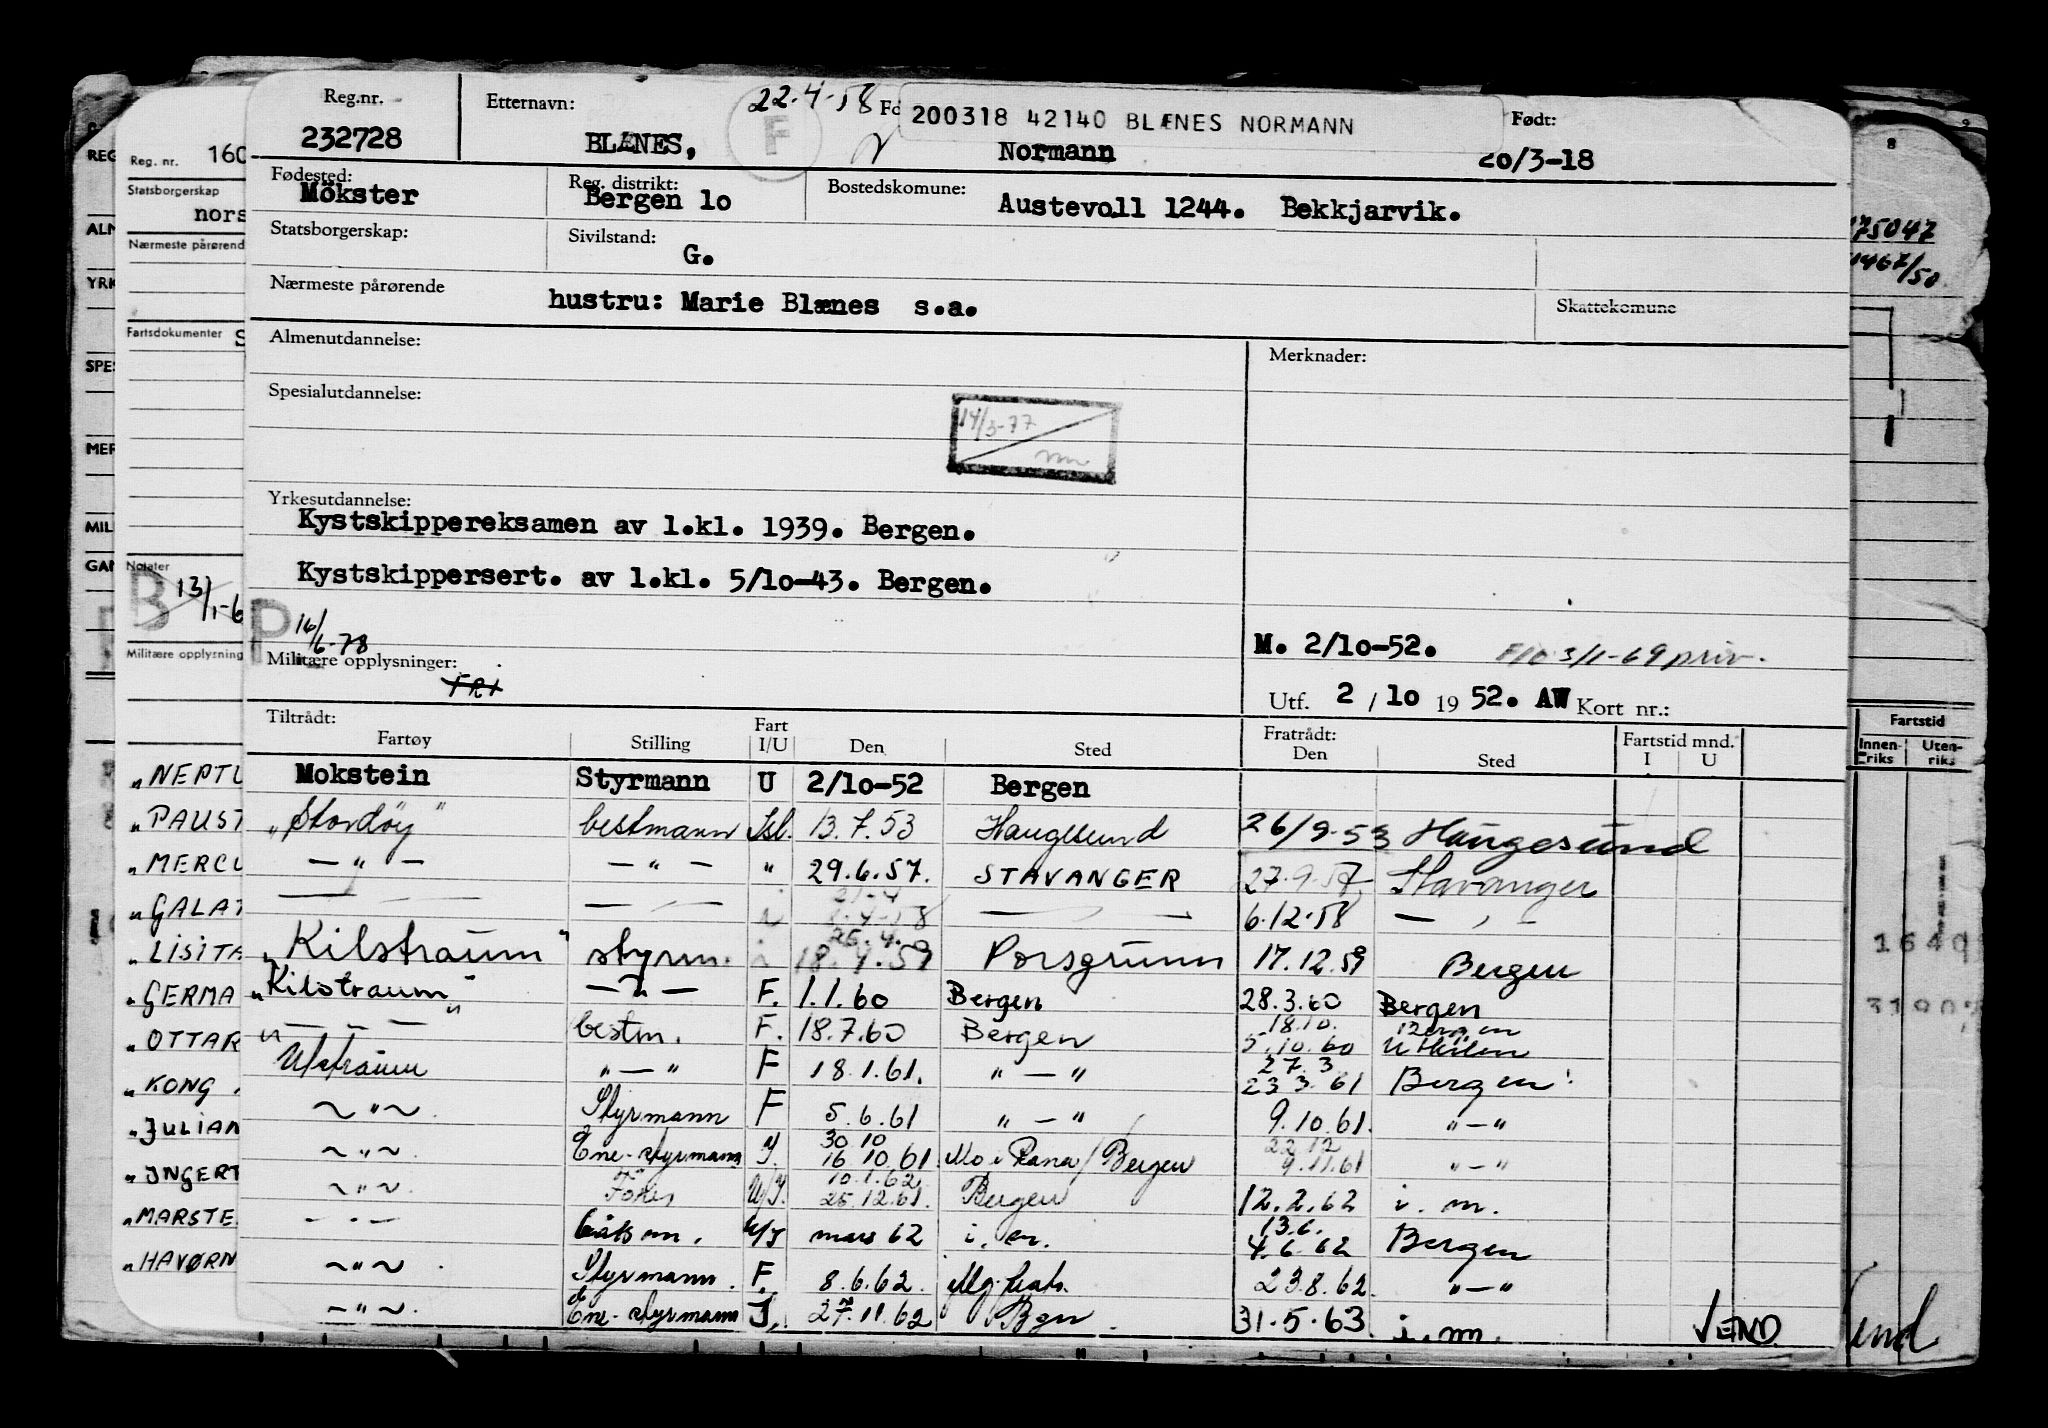 Reg.nr. Etternavn: 22-4-58 Fo 200318 42140 BLÆNES NORMANN Født:
232728 BLÆNES, F Normann 20/3-18
Fødested: Reg. distrikt: Bostedskomune:
Mökster Bergen 10 Austevoll 1244. Bekkjarvik.
Statsborgerskap: Sivilstand: G.
Nærmeste pårørende hustru: Marie Blænes s.a. Skattekomune
Almenutdannelse: Merknader:
Spesialutdannelse:
14/3-77
Yrkesutdannelse:
Kystskippereksamen av 1.kl. 1939. Bergen.
Kystskippersert. av 1.kl. 5/10-43. Bergen.
P 16/6-78
M. 2/10-52. 3/1-69 priv.
Militære opplysninger: FRI
Utf. 2 / 10 19 52. AW Kort nr.:
Tiltrådt: Fart Fratrådt: Fartstid mnd.
Fartøy Stilling I/U Den Sted Den Sted I U
Mokstein Styrmann U 2/10-52 Bergen
"Stordöy" bestmann Isl. 13.7.53 Haugesund 26/9-53 Haugesund
— " — — " — " 29.6.57. STAVANGER 27.9.57 Stavanger
6.12.58 — " —
"Kilstraum" styrm. 18.4.59 Porsgrunn 17.12.59 Bergen
"Kilstraum" — " — F. 1.1.60 Bergen 28.3.60 Bergen
— " — bestm. F. 18.7.60 Bergen 18.10. 5.10.60 Bergen
Ulstraum " — " F 18.1.61. " — " 27.3 23.3.61 Bergen
~ " ~ Styrmann F 5.6.61 " — " 9.10.61. " — "
~ " ~ Ene-styrmann I. 30 10 16 10 61 Mo i Rana / Bergen 22 12 9.11.61 " — "
~ " ~ U/I. 10.1.62 25.12.61. Bergen 12.2.62 i. m.
— " — båtsm. U/I mars 62 i. m. 13.6. 4.6.62 Bergen
~ " ~ Styrmann. F. 8.6.62. 23.8.62. " — "
~ " ~ Ene-styrmann I. 27.11.62 Bgn 31.5.63 i. m. VEND.
REG
ALM
YRK
SPES
MER
MIL
GAN
Reg. nr. 160
Statsborgerskap
nors
Nærmeste pårørend
Fartsdokumenter S
Notater
B 13/1-6
Militære opplysning
"NEPTU
"PAUST
"MERCU
"GALAT
"LISITA
"GERMA
"OTTAR
"KONG
"JULIAN
"INGERT
"MARSTE
"HAVØRN
8
75047
1467/50
Fartstid
Innen-riks Uten-riks
1640
3190
end